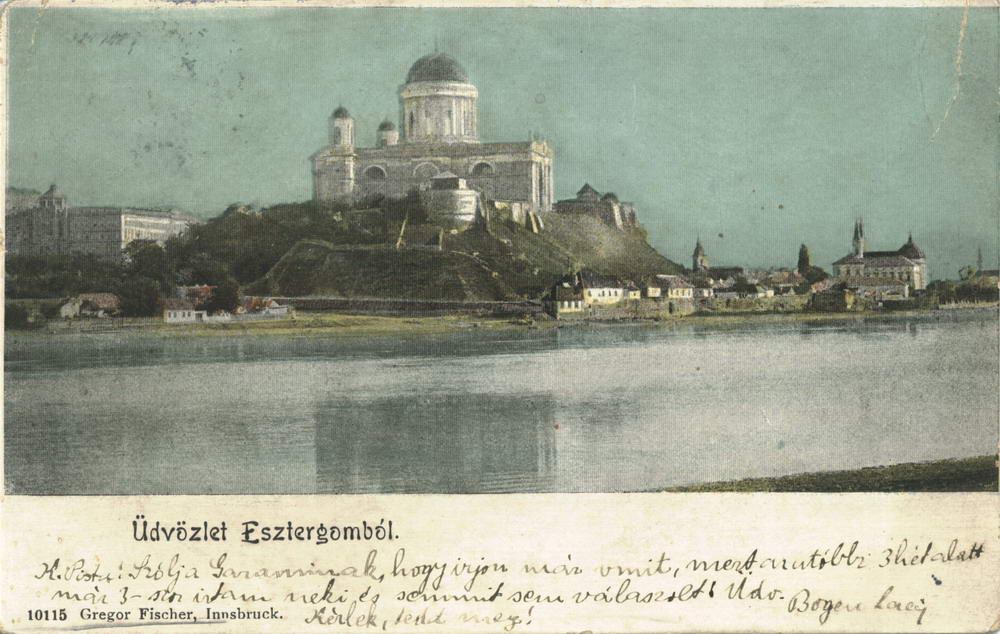 Üdvözlet Esztergomból.
K. Pista! Szólja Garaminak, hogy irjon már vmit, mert az utóbbi 3 hét alatt
már 3-szor irtam neki és semmit sem válaszolt! Üdv.
Bogen Laczi
10115 Gregor Fischer, Innsbruck.
Kérlek, tedd meg!